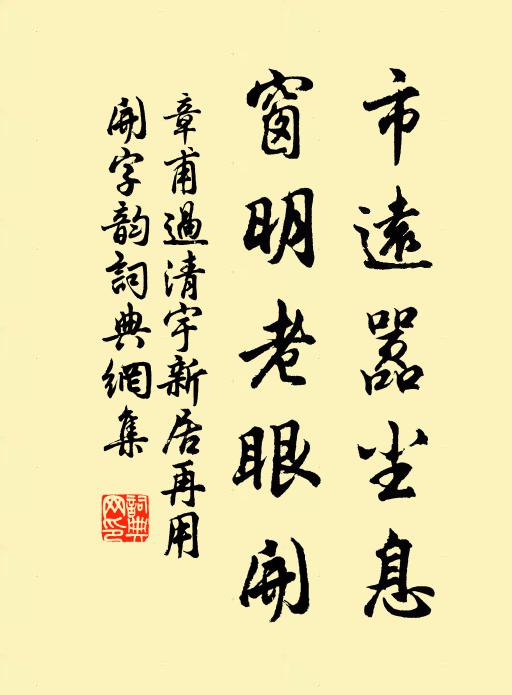 市遠嚣尘息
窗明老眼開
章甫過清宇新居再用
開字韵詞典網集
詞典
网印